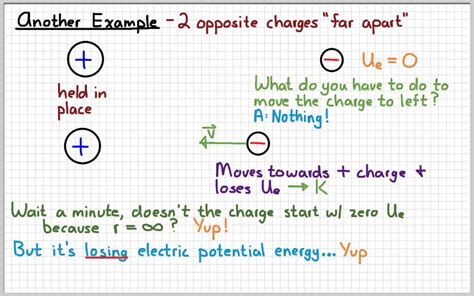 Another Example - 2 opposite charges "far apart"
+
− Ue = O
held in
place
What do you have to do to
move the charge to left?
A: Nothing!
+
v
−
Moves towards + charge +
loses Ue → K
Wait a minute, doesn't the charge start w/ zero Ue
because r = ∞ ? Yup!
But it's losing electric potential energy... Yup